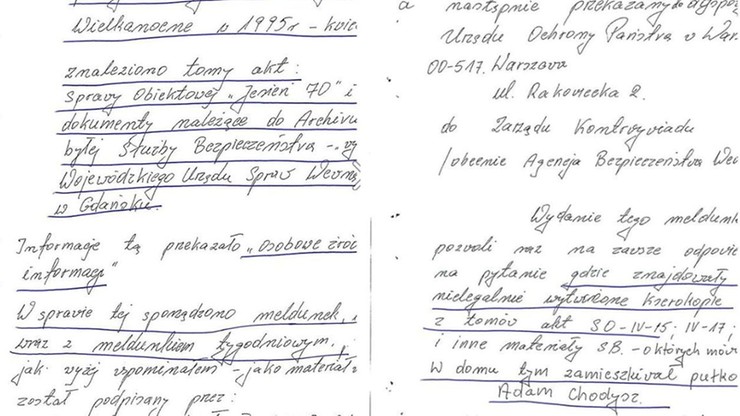 Wielkanocne w 1995r - kwie
znaleziono tomy akt :
sprawy Obiektowej „Jesień 70" i
dokumenty należące do Archiwu
byłej Służby Bezpieczeństwa - wy
Wojewódzkiego Urzędu Spraw Wewnę
w Gdańsku.
Informacje tą przekazało „osobowe źród
informacji"
W sprawie tej sporządzono meldunek,
wraz z meldunkiem tygodniowym,
jak wyżej wspomniałem - jako materiał
został podpisany przez :
a następnie przekazany do dyspoz
Urzędu Ochrony Państwa w War
00-517. Warszawa
ul. Rakowiecka 2.
do Zarządu Kontrwywiadu
/obecnie Agencja Bezpieczeństwa Wew
Wydanie tego meldunk
pozwoli raz na zawsze odpowie
na pytanie gdzie znajdowały
nielegalnie wytworzone kserokopie
z tomów akt SO-IV-15; IV-17;
i inne materiały S.B. - o których mów
W domu tym zamieszkiwał pułko
Adam Chodysz.